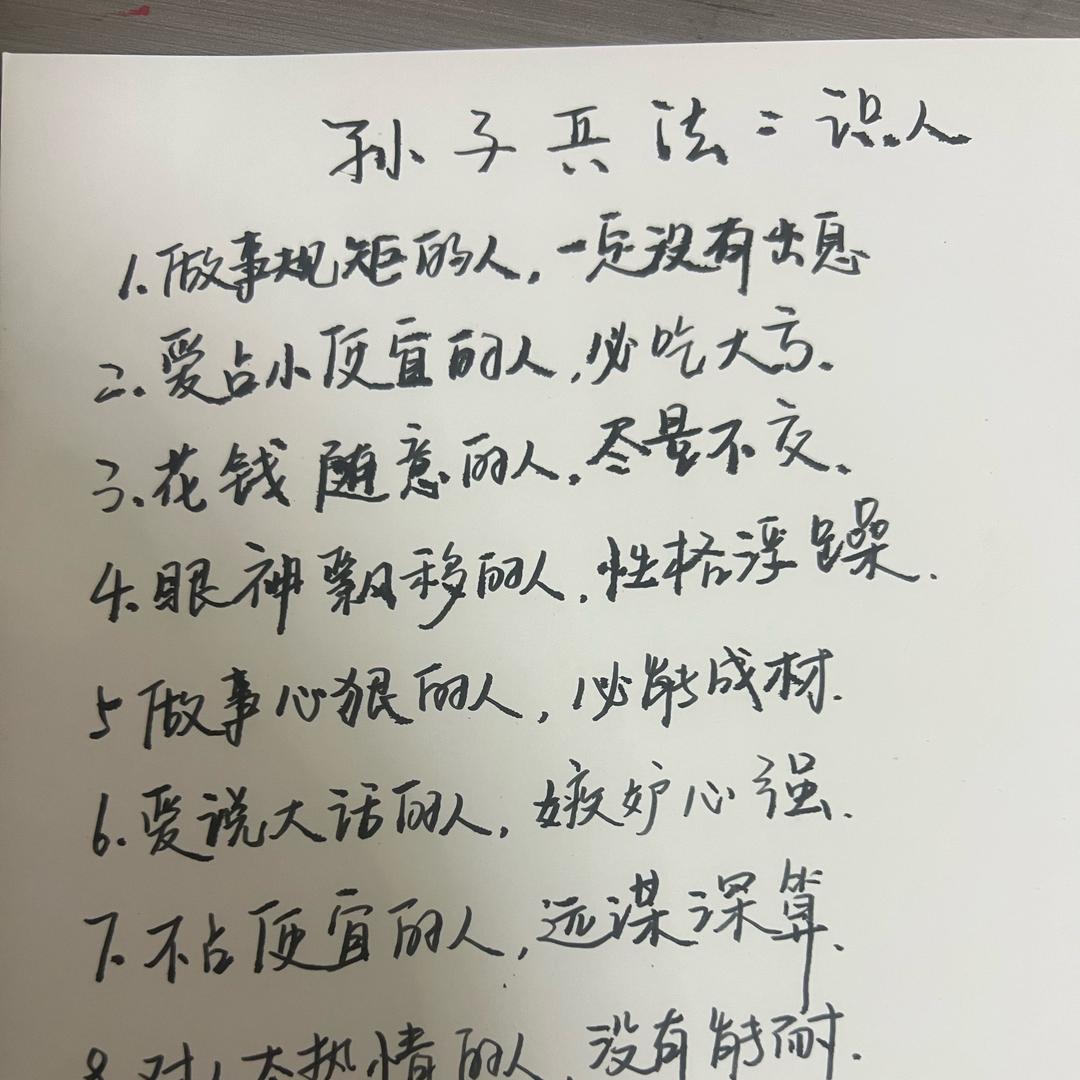 孙子兵法:识人
1.做事规矩的人,一定没有出息
2.爱占小便宜的人,必吃大亏.
3.花钱随意的人.尽量不交.
4.眼神飘移的人,性格浮躁.
5做事心狠的人,必能成材.
6.爱说大话的人,嫉妒心强.
7.不占便宜的人,远谋深算.
8.对人太热情的人,没有能耐.